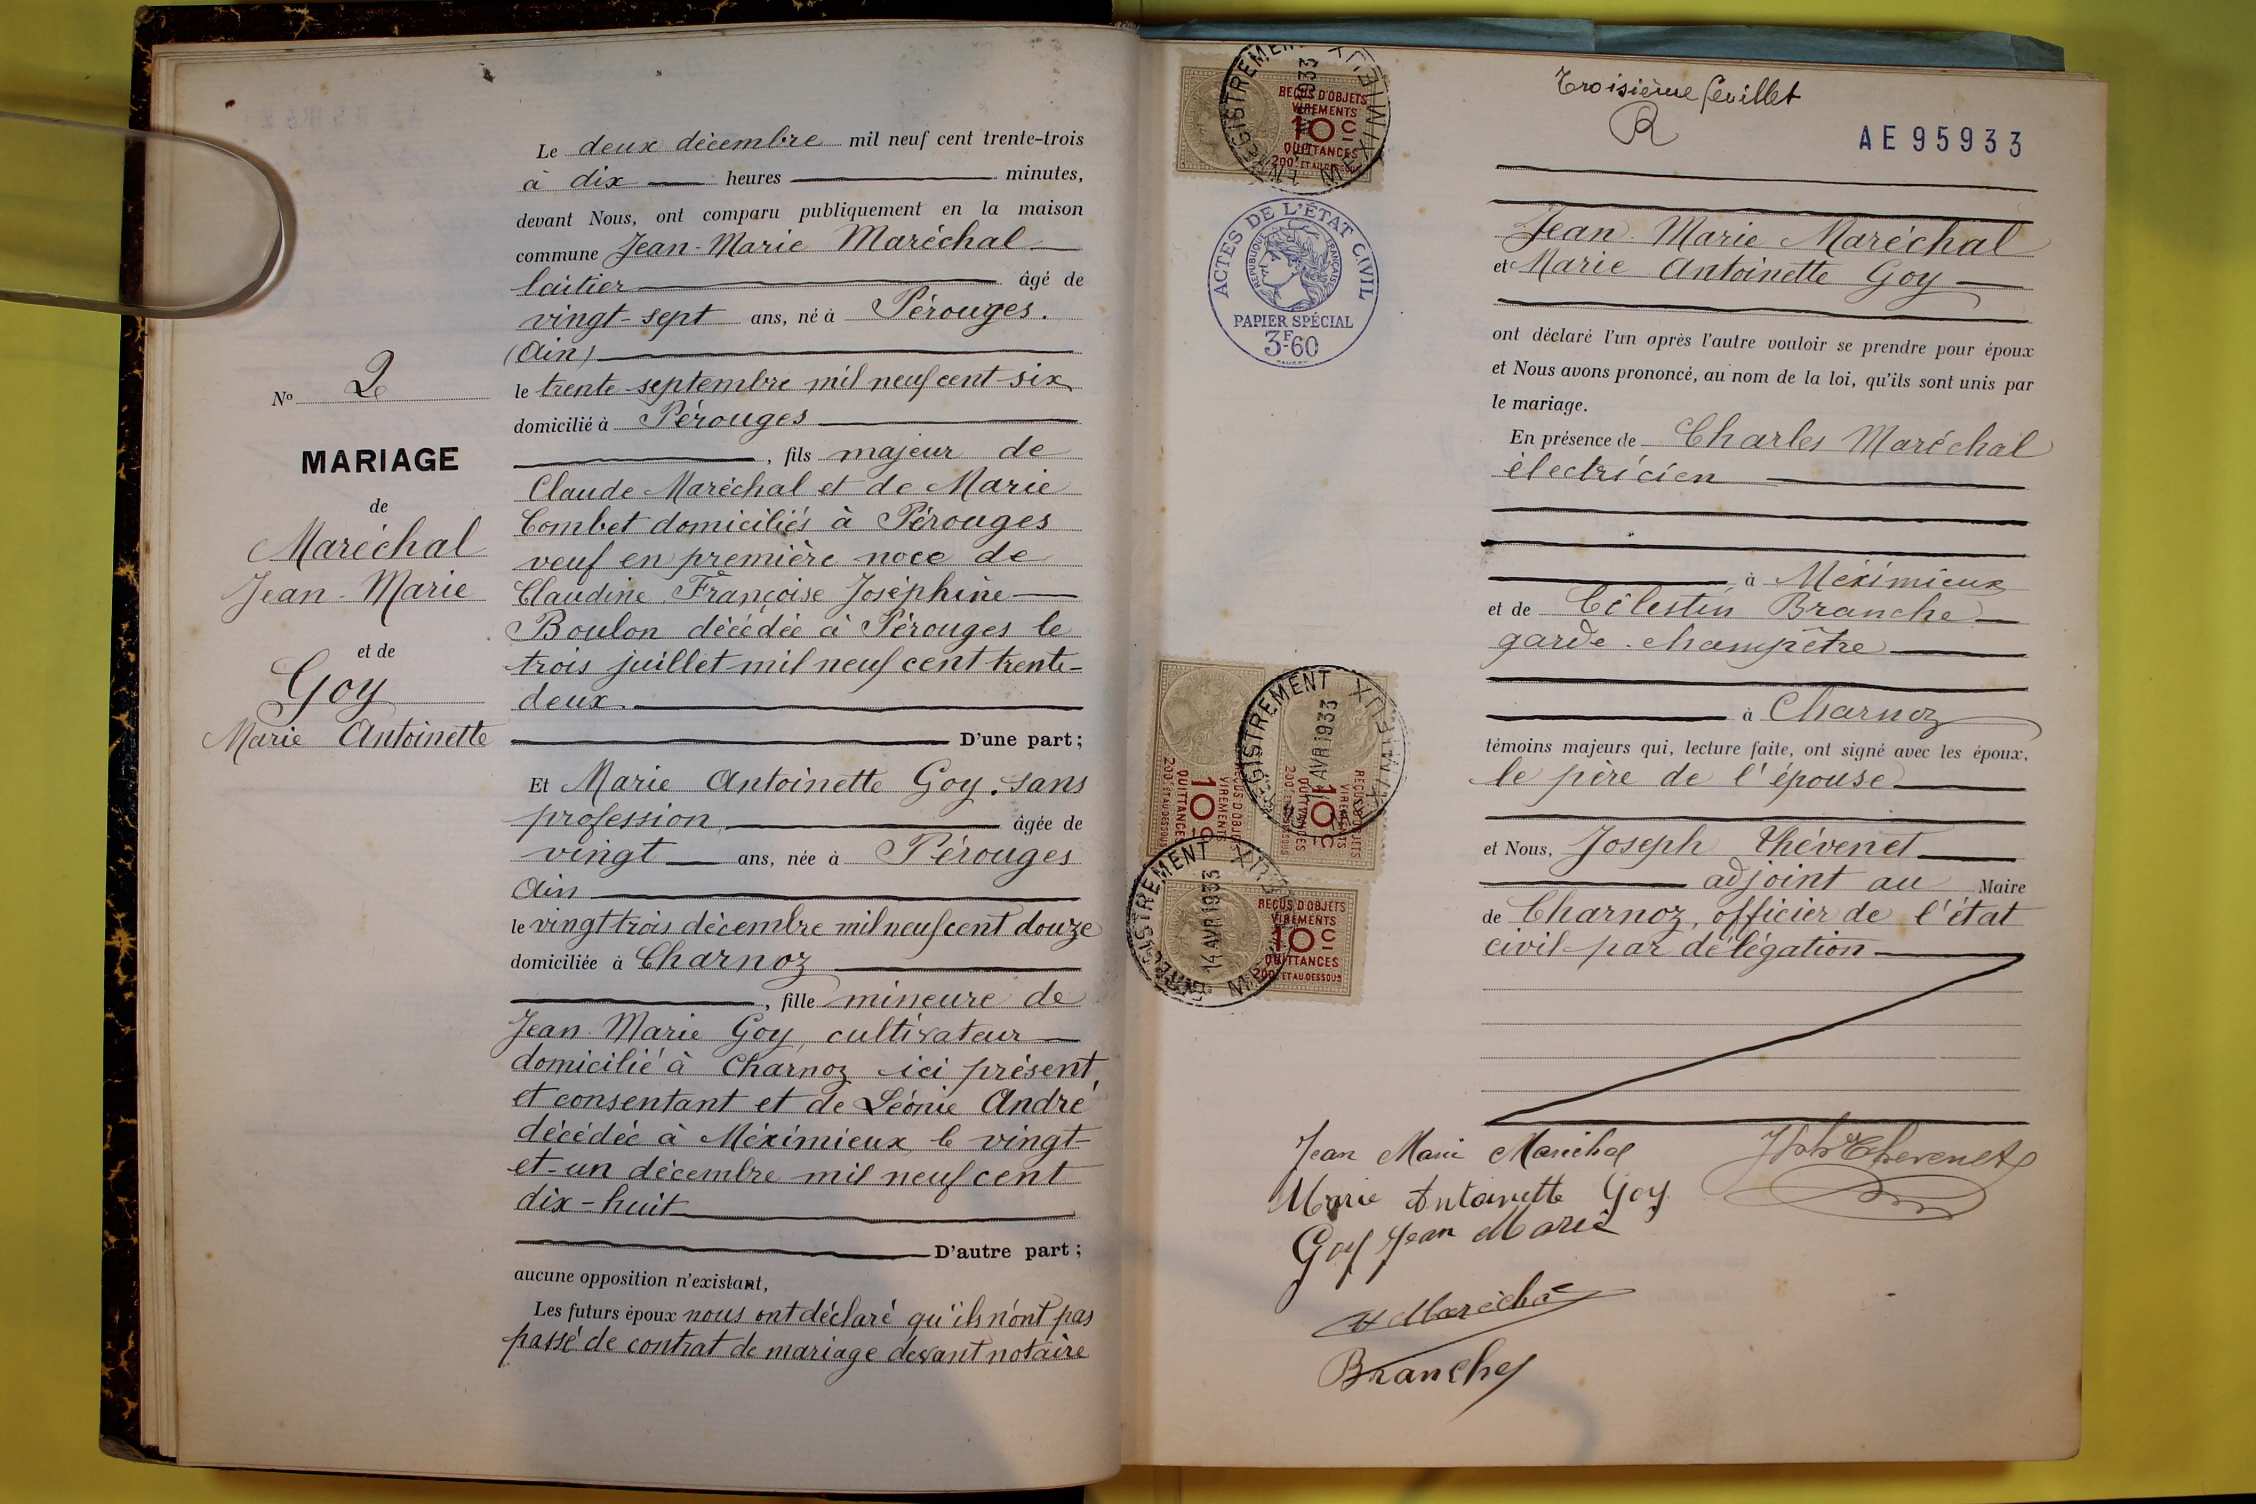 Le deux décembre mil neuf cent trente-trois
à dix heures minutes,
devant Nous, ont comparu publiquement en la maison
commune Jean-Marie Maréchal
laitier âgé de
vingt-sept ans, né à Pérouges.
(Ain)
le trente septembre mil neuf cent six
domicilié à Pérouges
, fils majeur de
Claude Maréchal et de Marie
Combet domiciliés à Pérouges
veuf en première noce de
Claudine Françoise Joséphine
Boulon décédée à Pérouges le
trois juillet mil neuf cent trente-
deux.
D'une part ;
Et Marie Antoinette Goy. sans
profession âgée de
vingt ans, née à Pérouges
Ain
le vingt trois décembre mil neuf cent douze
domiciliée à Charnoz
, fille mineure de
Jean Marie Goy, cultivateur
domicilié à Charnoz ici présent,
et consentant et de Léonie André
décédée à Méximieux le vingt-
et-un décembre mil neuf cent
dix-huit
D'autre part ;
aucune opposition n'existant,
Les futurs époux nous ont déclaré qu'ils n'ont pas
passé de contrat de mariage devant notaire
No 2
MARIAGE
de
Maréchal
Jean-Marie
et de
Goy
Marie Antoinette
Troisième feuillet
R
AE 95933
Jean Marie Maréchal
et Marie Antoinette Goy
ont déclaré l'un après l'autre vouloir se prendre pour époux
et Nous avons prononcé, au nom de la loi, qu'ils sont unis par
le mariage.
En présence de Charles Maréchal
électricien
à Méximieux
et de Célestin Branche
garde-champêtre
à Charnoz
témoins majeurs qui, lecture faite, ont signé avec les époux,
le père de l'épouse
et Nous, Joseph Thévenet
adjoint au Maire
de Charnoz, officier de l'état
civil par délégation
Jean Marie Maréchal
Marie Antoinette Goy
Goy Jean Marie
Maréchal
Branche
Thevenet
ENREGISTREMENT
MEXIMIEUX
1933
REÇUS D'OBJETS
VIREMENTS
10 C
QUITTANCES
200F ET AU DESSOUS
ACTES DE L'ÉTAT CIVIL
RÉPUBLIQUE FRANÇAISE
PAPIER SPÉCIAL
3F60
REÇUS D'OBJETS
VIREMENTS
10 C
QUITTANCES
200F ET AU DESSOUS
ENREGISTREMENT
MEXIMIEUX
AVR 1933
REÇUS D'OBJETS
VIREMENTS
10 C
QUITTANCES
200F ET AU DESSOUS
ENREGISTREMENT
MEXIMIEUX
14 AVR 1933
REÇUS D'OBJETS
VIREMENTS
10 C
QUITTANCES
200F ET AU DESSOUS